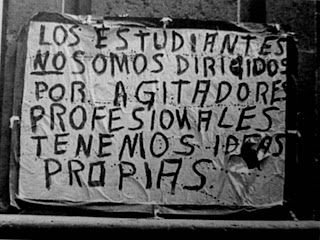 LOS ESTUDIANTES
NO SOMOS DIRIGIDOS
POR AGITADORES
PROFESIONALES
TENEMOS IDEAS
PROPIAS.